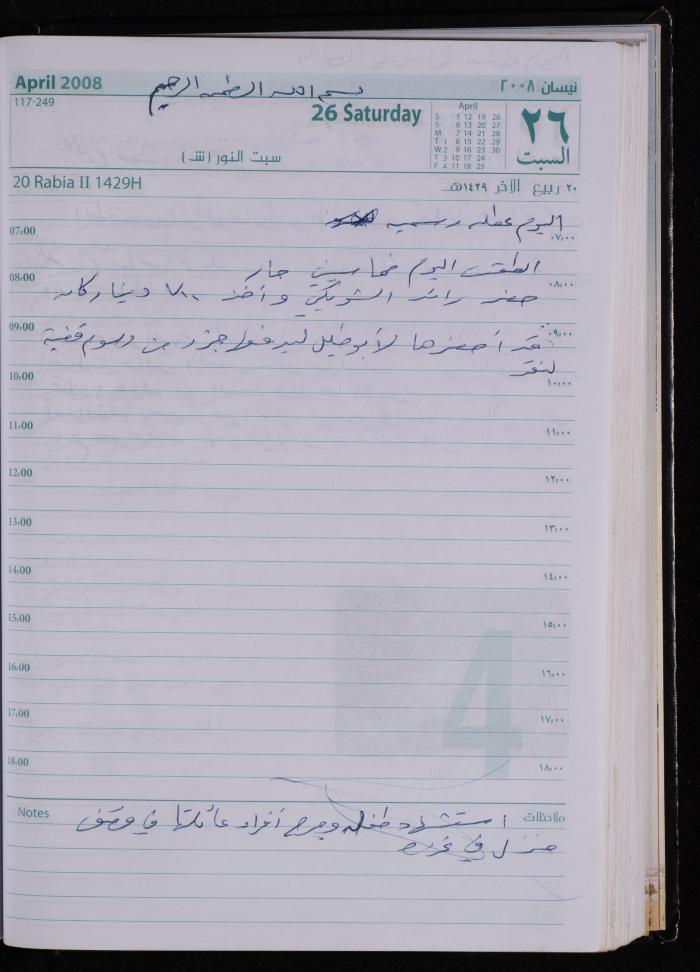 April 2008
بسم الله الرحمن الرحيم
نيسان ٢٠٠٨
117-249
26 Saturday
April
S 5 12 19 26
S 6 13 20 27
M 7 14 21 28
T 1 8 15 22 29
W 2 9 16 23 30
T 3 10 17 24
F 4 11 18 25
٢٦
السبت
سبت النور (ش)
20 Rabia II 1429H
٢٠ ربيع الآخر ١٤٢٩هـ
اليوم عطله رسميه
07:00 ٠٧:٠٠
الطقس اليوم خماسيني حار
08:00 ٠٨:٠٠
حضر رائد الشوبكي وأخذ ٧٠٠ دينار كان
09:00 ٠٩:٠٠
قد أحضرها لأبو خليل ليدفعوا جزء من رسوم قضية
10:00 ١٠:٠٠
11:00 ١١:٠٠
12:00 ١٢:٠٠
13:00 ١٣:٠٠
14:00 ١٤:٠٠
15:00 ١٥:٠٠
16:00 ١٦:٠٠
17:00 ١٧:٠٠
18:00 ١٨:٠٠
4
Notes ملاحظات
استشهاد طفله وجرح أفراد عائلتها في قصف
منزل في غزه